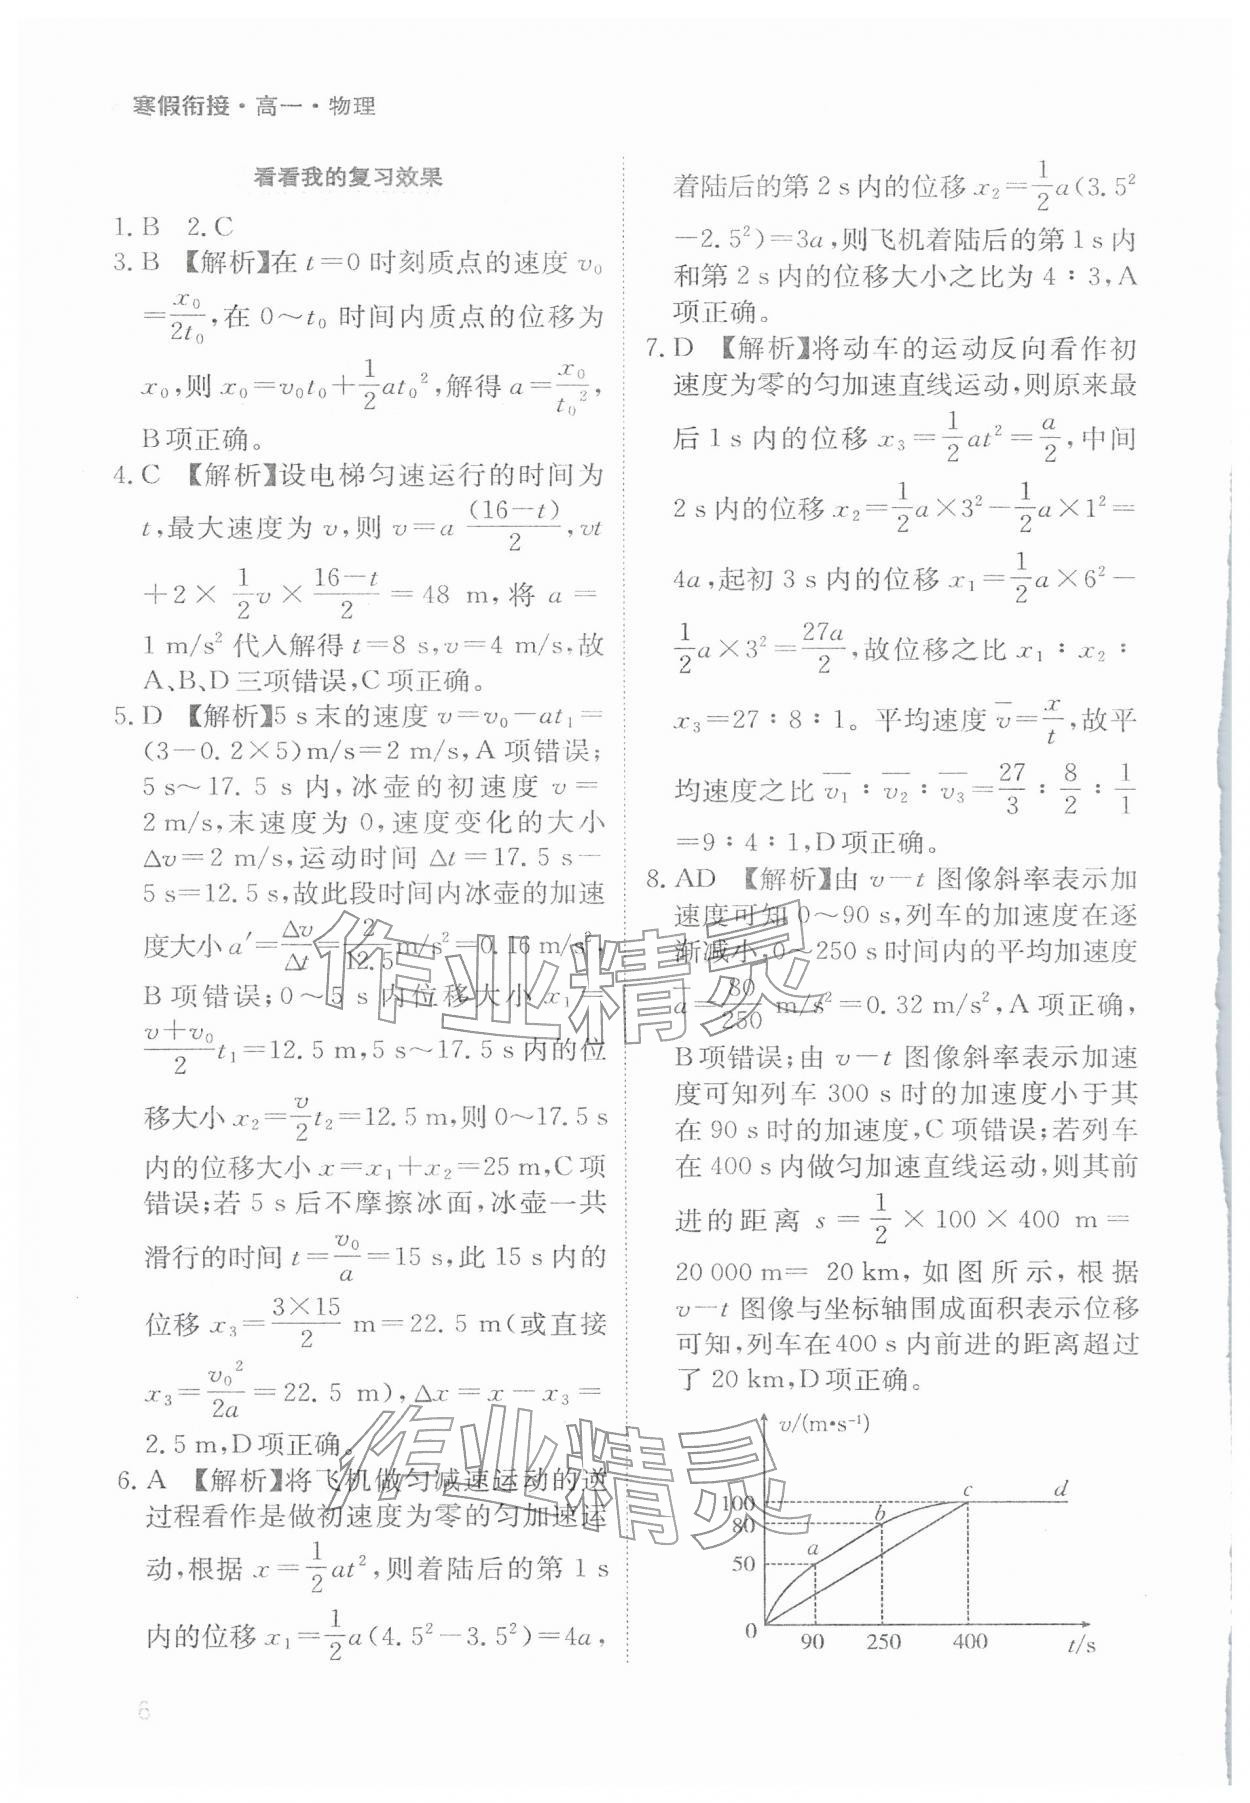 寒假衔接·高一·物理
看看我的复习效果
1.B 2.C
3.B 【解析】在 t=0 时刻质点的速度 v₀
=x₀/2t₀,在 0～t₀ 时间内质点的位移为
x₀,则 x₀=v₀t₀+1/2at₀²,解得 a=x₀/t₀²,
B项正确。
4.C 【解析】设电梯匀速运行的时间为
t,最大速度为 v,则 v=a (16-t)/2,vt
+2×1/2v×(16-t)/2=48 m,将 a=
1 m/s² 代入解得 t=8 s,v=4 m/s,故
A、B、D三项错误,C项正确。
5.D 【解析】5 s末的速度 v=v₀-at₁=
(3-0.2×5)m/s=2 m/s,A项错误;
5 s～17.5 s 内,冰壶的初速度 v=
2 m/s,末速度为 0,速度变化的大小
Δv=2 m/s,运动时间 Δt=17.5 s-
5 s=12.5 s,故此段时间内冰壶的加速
度大小 a′=Δv/Δt=2/12.5 m/s²=0.16 m/s²,
B项错误;0～5 s 内位移大小 x₁=
(v+v₀)/2 t₁=12.5 m,5 s～17.5 s内的位
移大小 x₂=v/2 t₂=12.5 m,则 0～17.5 s
内的位移大小 x=x₁+x₂=25 m,C项
错误;若 5 s后不摩擦冰面,冰壶一共
滑行的时间 t=v₀/a=15 s,此 15 s内的
位移 x₃=3×15/2 m=22.5 m(或直接
x₃=v₀²/2a=22.5 m),Δx=x-x₃=
2.5 m,D项正确。
6.A 【解析】将飞机做匀减速运动的逆
过程看作是做初速度为零的匀加速运
动,根据 x=1/2at²,则着陆后的第 1 s
内的位移 x₁=1/2a(4.5²-3.5²)=4a,
着陆后的第 2 s内的位移 x₂=1/2a(3.5²
-2.5²)=3a,则飞机着陆后的第 1 s内
和第 2 s内的位移大小之比为 4∶3,A
项正确。
7.D 【解析】将动车的运动反向看作初
速度为零的匀加速直线运动,则原来最
后 1 s内的位移 x₃=1/2at²=a/2,中间
2 s内的位移 x₂=1/2a×3²-1/2a×1²=
4a,起初 3 s内的位移 x₁=1/2a×6²-
1/2a×3²=27a/2,故位移之比 x₁∶x₂∶
x₃=27∶8∶1。平均速度 v̄=x/t,故平
均速度之比 v̄₁∶v̄₂∶v̄₃=27/3∶8/2∶1/1
=9∶4∶1,D项正确。
8.AD 【解析】由 v-t 图像斜率表示加
速度可知 0～90 s,列车的加速度在逐
渐减小,0～250 s时间内的平均加速度
a=80/250 m/s²=0.32 m/s²,A项正确,
B项错误;由 v-t 图像斜率表示加速
度可知列车 300 s时的加速度小于其
在 90 s时的加速度,C项错误;若列车
在 400 s内做匀加速直线运动,则其前
进的距离 s=1/2×100×400 m=
20 000 m= 20 km,如图所示,根据
v-t 图像与坐标轴围成面积表示位移
可知,列车在400 s内前进的距离超过
了 20 km,D项正确。
v/(m•s⁻¹)
100
80
50
0
a
b
c
d
90 250 400 t/s
作业精灵
作业精灵
6